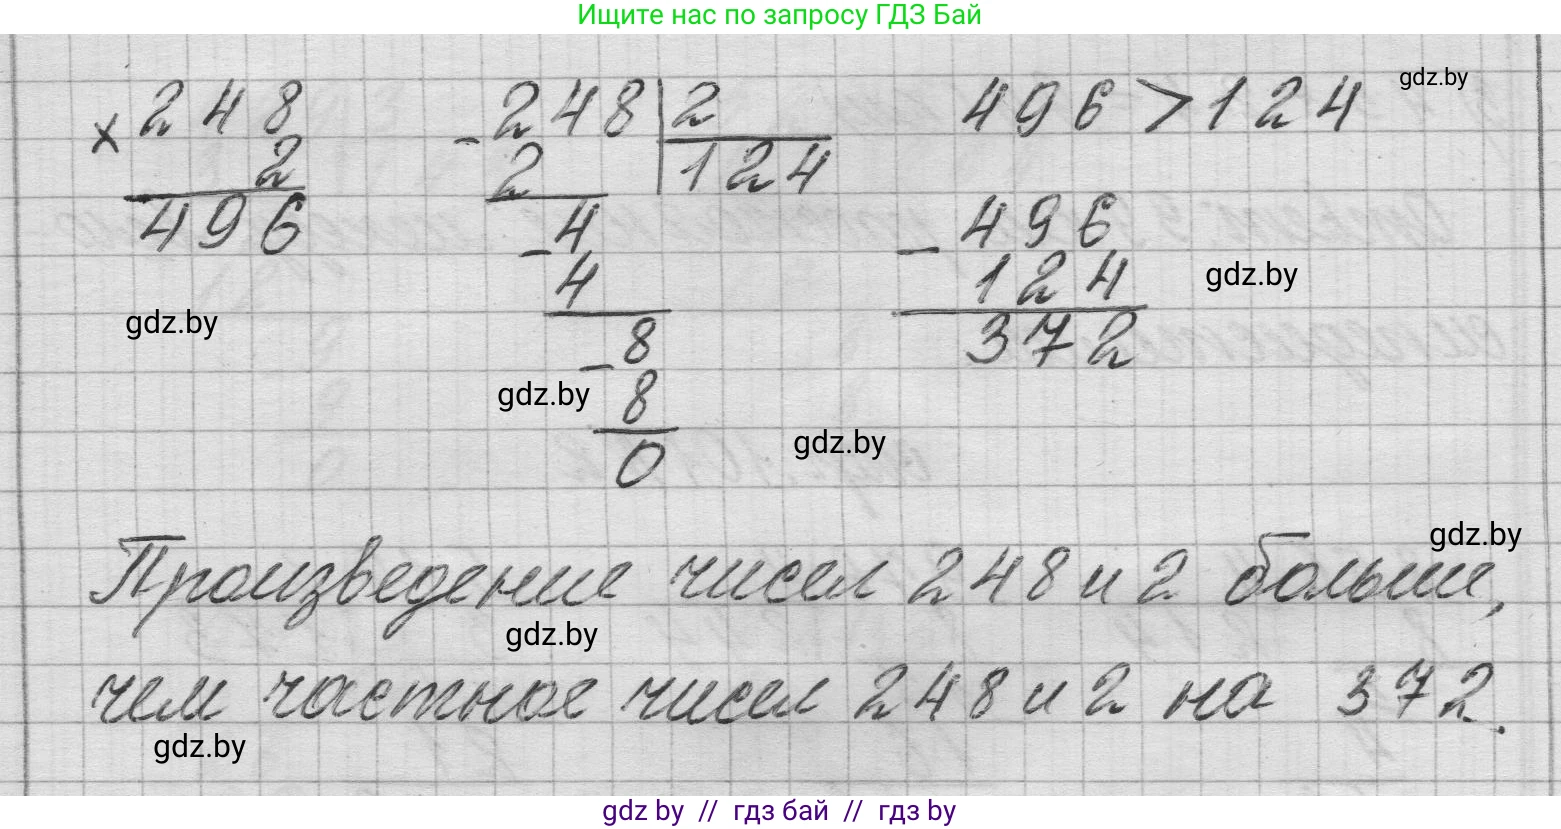 Ищите нас по запросу ГДЗ Бай
× 248
2
496
- 248 | 2
2 124
- 4
4
- 8
8
0
496 > 124
- 496
124
372
gdz.by
gdz.by
gdz.by
gdz.by
gdz.by
gdz.by
Произведение чисел 248 и 2 больше,
gdz.by
чем частное чисел 248 и 2 на 372.
gdz.by
gdz by // гдз бай // гдз by